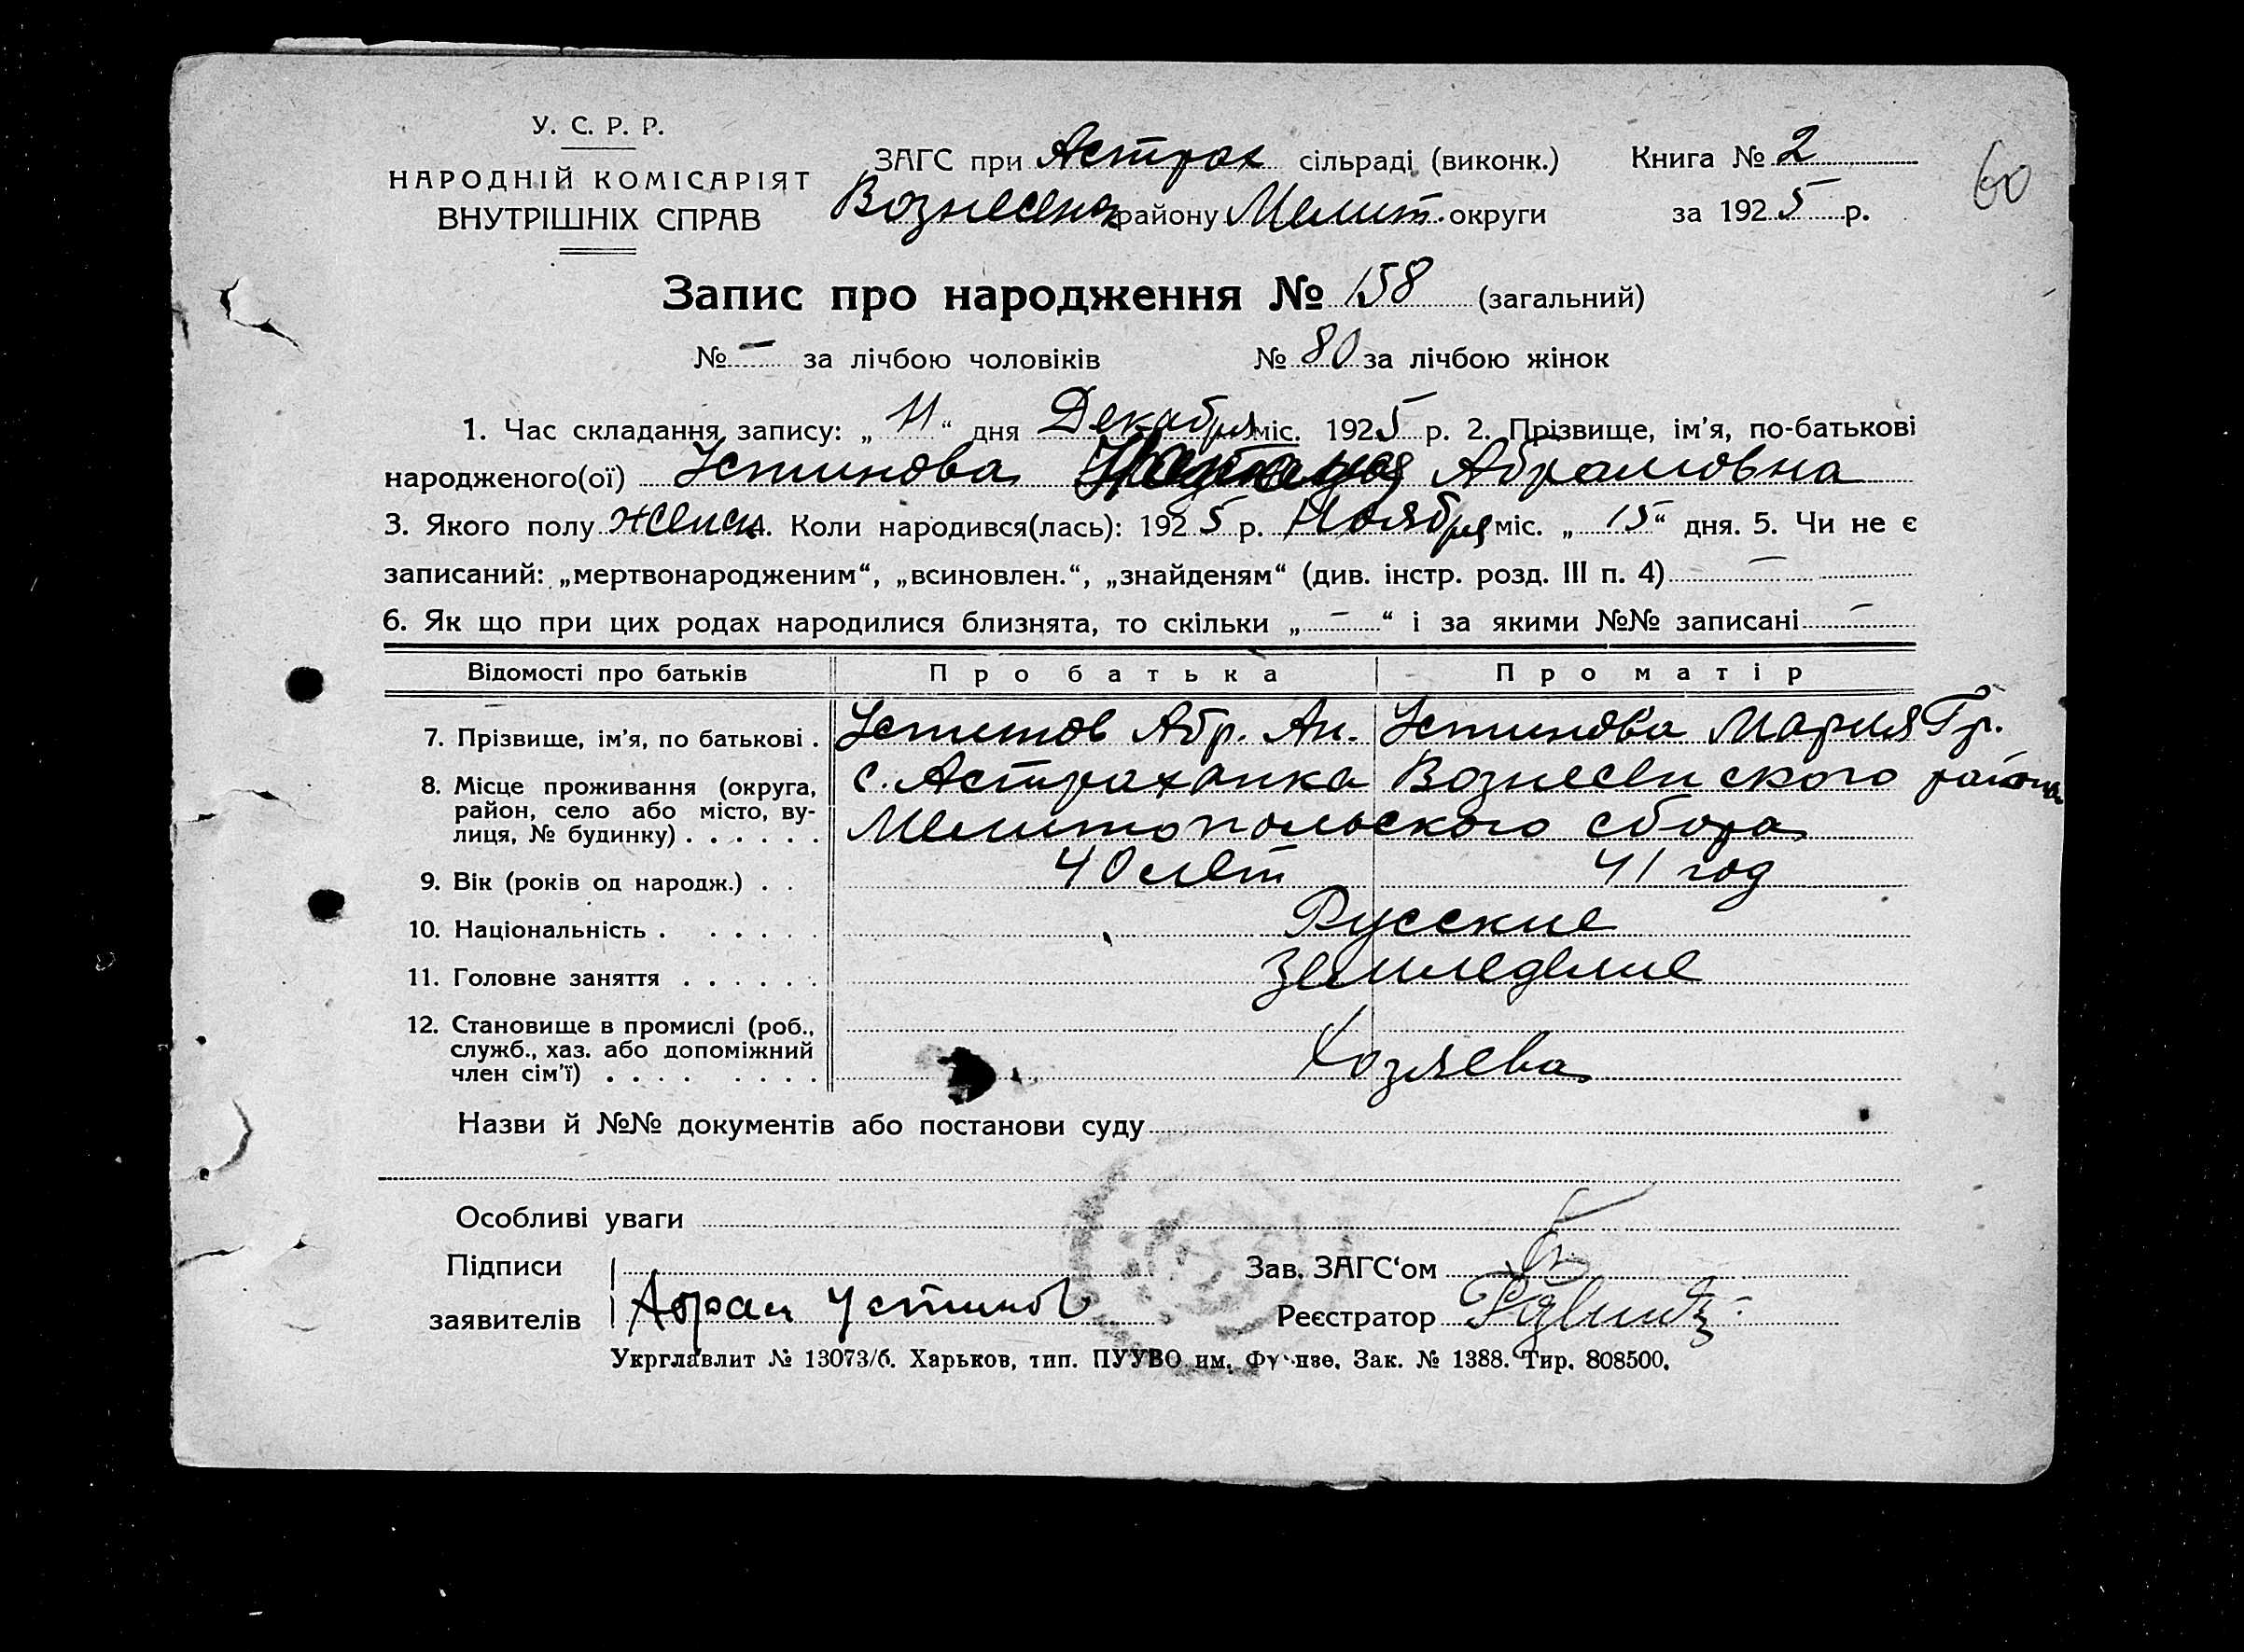 У. С. Р. Р.
НАРОДНІЙ КОМІСАРІЯТ
ВНУТРІШНІХ СПРАВ
ЗАГС при Астрах сільраді (виконк.)
Вознесенк району Мелит. округи
Книга № 2
за 1925 р.
60
Запис про народження № 158 (загальний)
№ – за лічбою чоловіків № 80 за лічбою жінок
1. Час складання запису: „ 11 “ дня Декабря міс. 1925 р. 2. Прізвище, ім’я, по-батькові
народженого(ої) Устинова Абрамовна
3. Якого полу женск 4. Коли народився(лась): 1925 р. Ноября міс. „ 15 “ дня. 5. Чи не є
записаний: „мертвонародженим“, „всиновлен.“, „знайденям“ (див. інстр. розд. III п. 4) –
6. Як що при цих родах народилися близнята, то скільки „ – “ і за якими №№ записані –
Відомості про батьків Про батька Про матір
7. Прізвище, ім’я, по батькові . Устинов Абр. Ан. Устинова Мария Гр.
8. Місце проживання (округа, с. Астраханка Вознесенского района
район, село або місто, ву-
лиця, № будинку) . . . . . . Мелитопольского
9. Вік (років од народж.) . . 40 лет 41 год
10. Національність . . . . . . Русские
11. Головне заняття . . . . . . Земледелие
12. Становище в промислі (роб.,
служб., хаз. або допоміжний
член сім’ї) . . . . . . . . Хозяева
Назви й №№ документів або постанови суду
Особливі уваги
Підписи
заявителів Абрам Устинов
Зав. ЗАГС‘ом
Реєстратор
Укрглавлит № 13073/6. Харьков, тип. ПУУВО им. Фрунзе. Зак. № 1388. Тир. 808500.